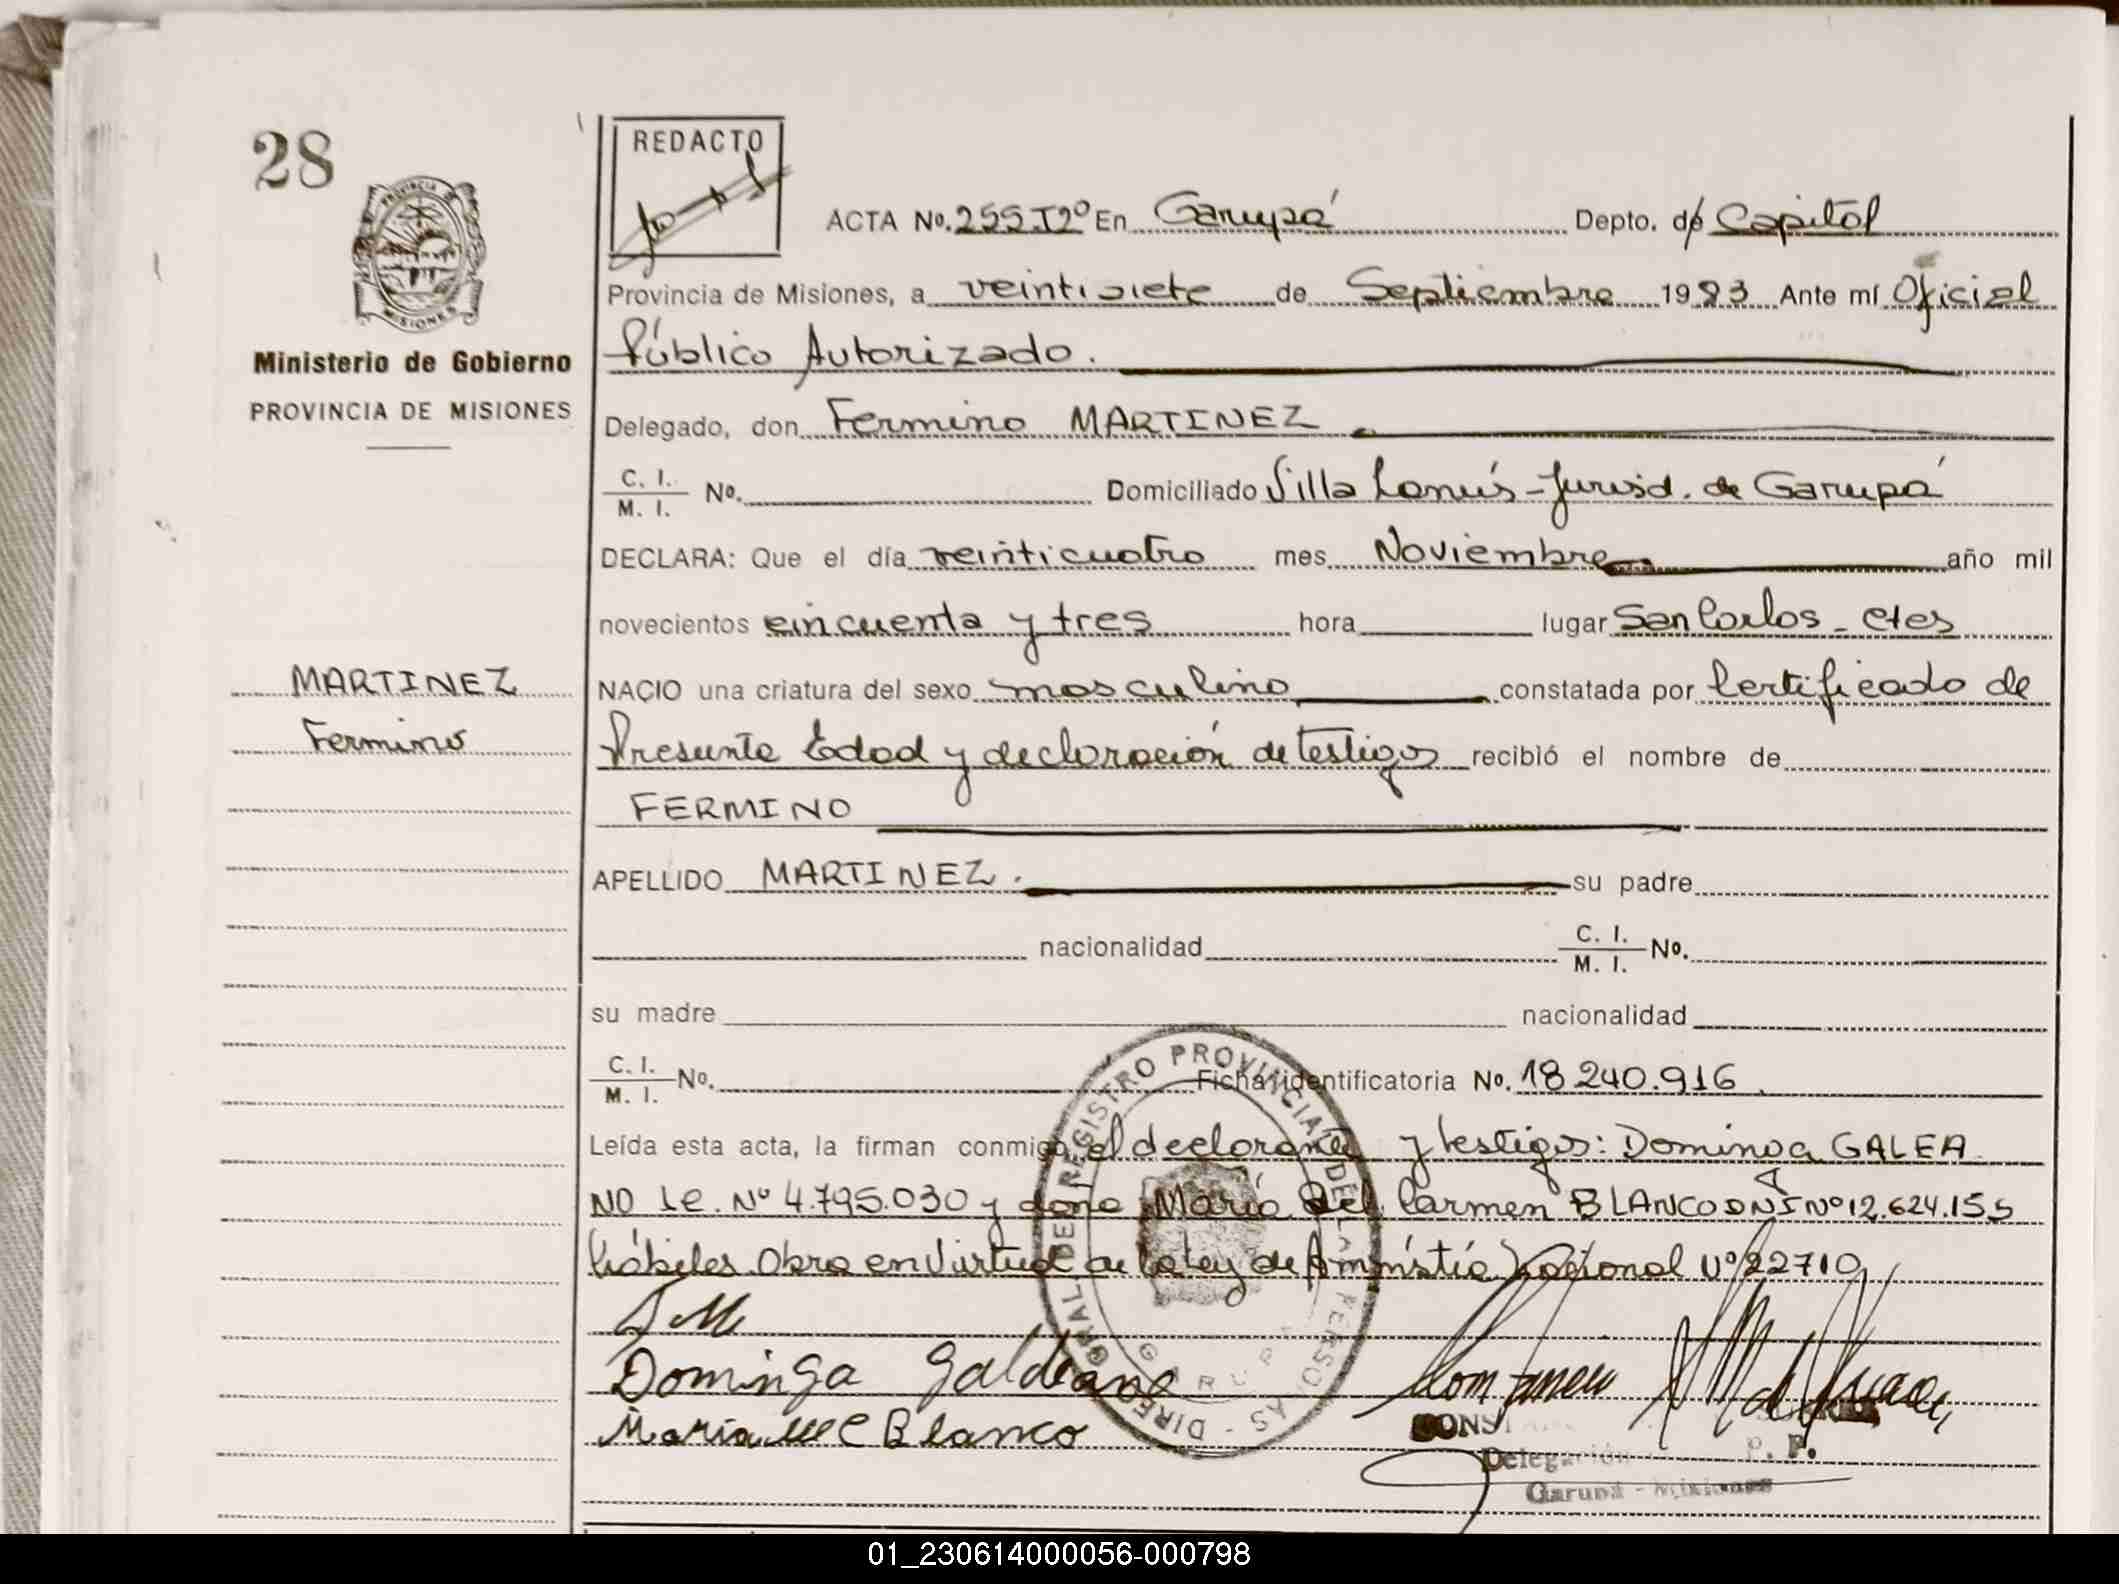 28
PROVINCIA DE
MISIONES
Ministerio de Gobierno
PROVINCIA DE MISIONES
MARTINEZ
Fermino
REDACTO
ACTA No. 255 Tº 2º En Garupá Depto. de Capital
Provincia de Misiones, a veintisiete de Septiembre 1983 Ante mí Oficial
Público Autorizado.
Delegado, don Fermino MARTINEZ
C. I. / M. I. No. Domiciliado Villa Lanús - Jurisd. de Garupá
DECLARA: Que el día veinticuatro mes Noviembre año mil
novecientos cincuenta y tres hora lugar San Carlos - Ctes
NACIO una criatura del sexo masculino constatada por Certificado de
Presunta Edad y declaración de testigos recibió el nombre de
FERMINO
APELLIDO MARTINEZ. su padre
nacionalidad C. I. / M. I. No.
su madre nacionalidad
C. I. / M. I. No. Ficha identificatoria No. 18 240.916
Leída esta acta, la firman conmigo el declarante y testigos: Dominga GALEA
NO LC. Nº 4.795.030 y doña María del Carmen BLANCO DNI Nº 12.624.155
hábiles. Obra en Virtud de la Ley de Amnistía Nacional Nº 22710
F M
Dominga Galeano
Maria del C Blanco
DIREC. GRAL DE REGISTRO PROVINCIAL DE LAS PERSONAS
GARUPA
CONS
Delegación P. P.
Garupá - Misiones
01_230614000056-000798